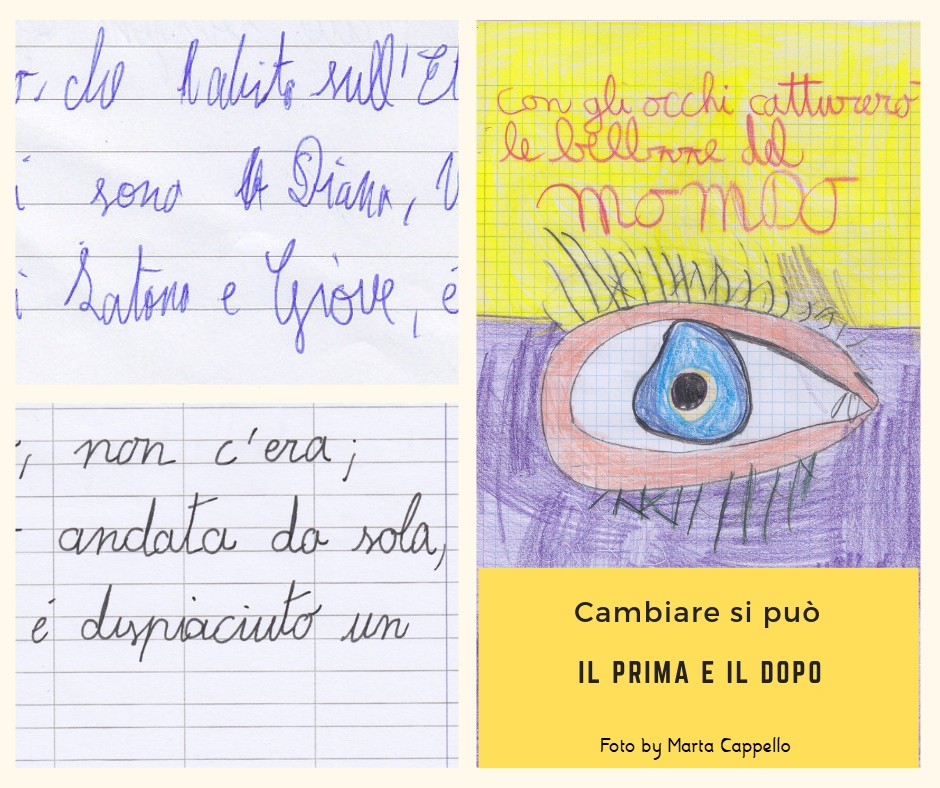 r, che habito sull'Et
i sono A Diana, V
i Satono e Giove, é
; non c'era;
andata da sola,
é dispiaciuto un
con gli occhi catturerò
le bellezze del
MOMDO
Cambiare si può
IL PRIMA E IL DOPO
Foto by Marta Cappello